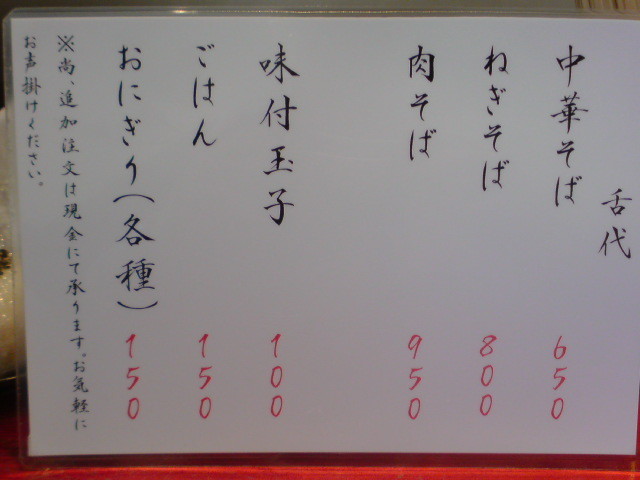 舌代
中華そば 650
ねぎそば 800
肉そば 950
味付玉子 100
ごはん 150
おにぎり(各種) 150
※尚、追加注文は現金にて承ります。お気軽に
お声掛けください。